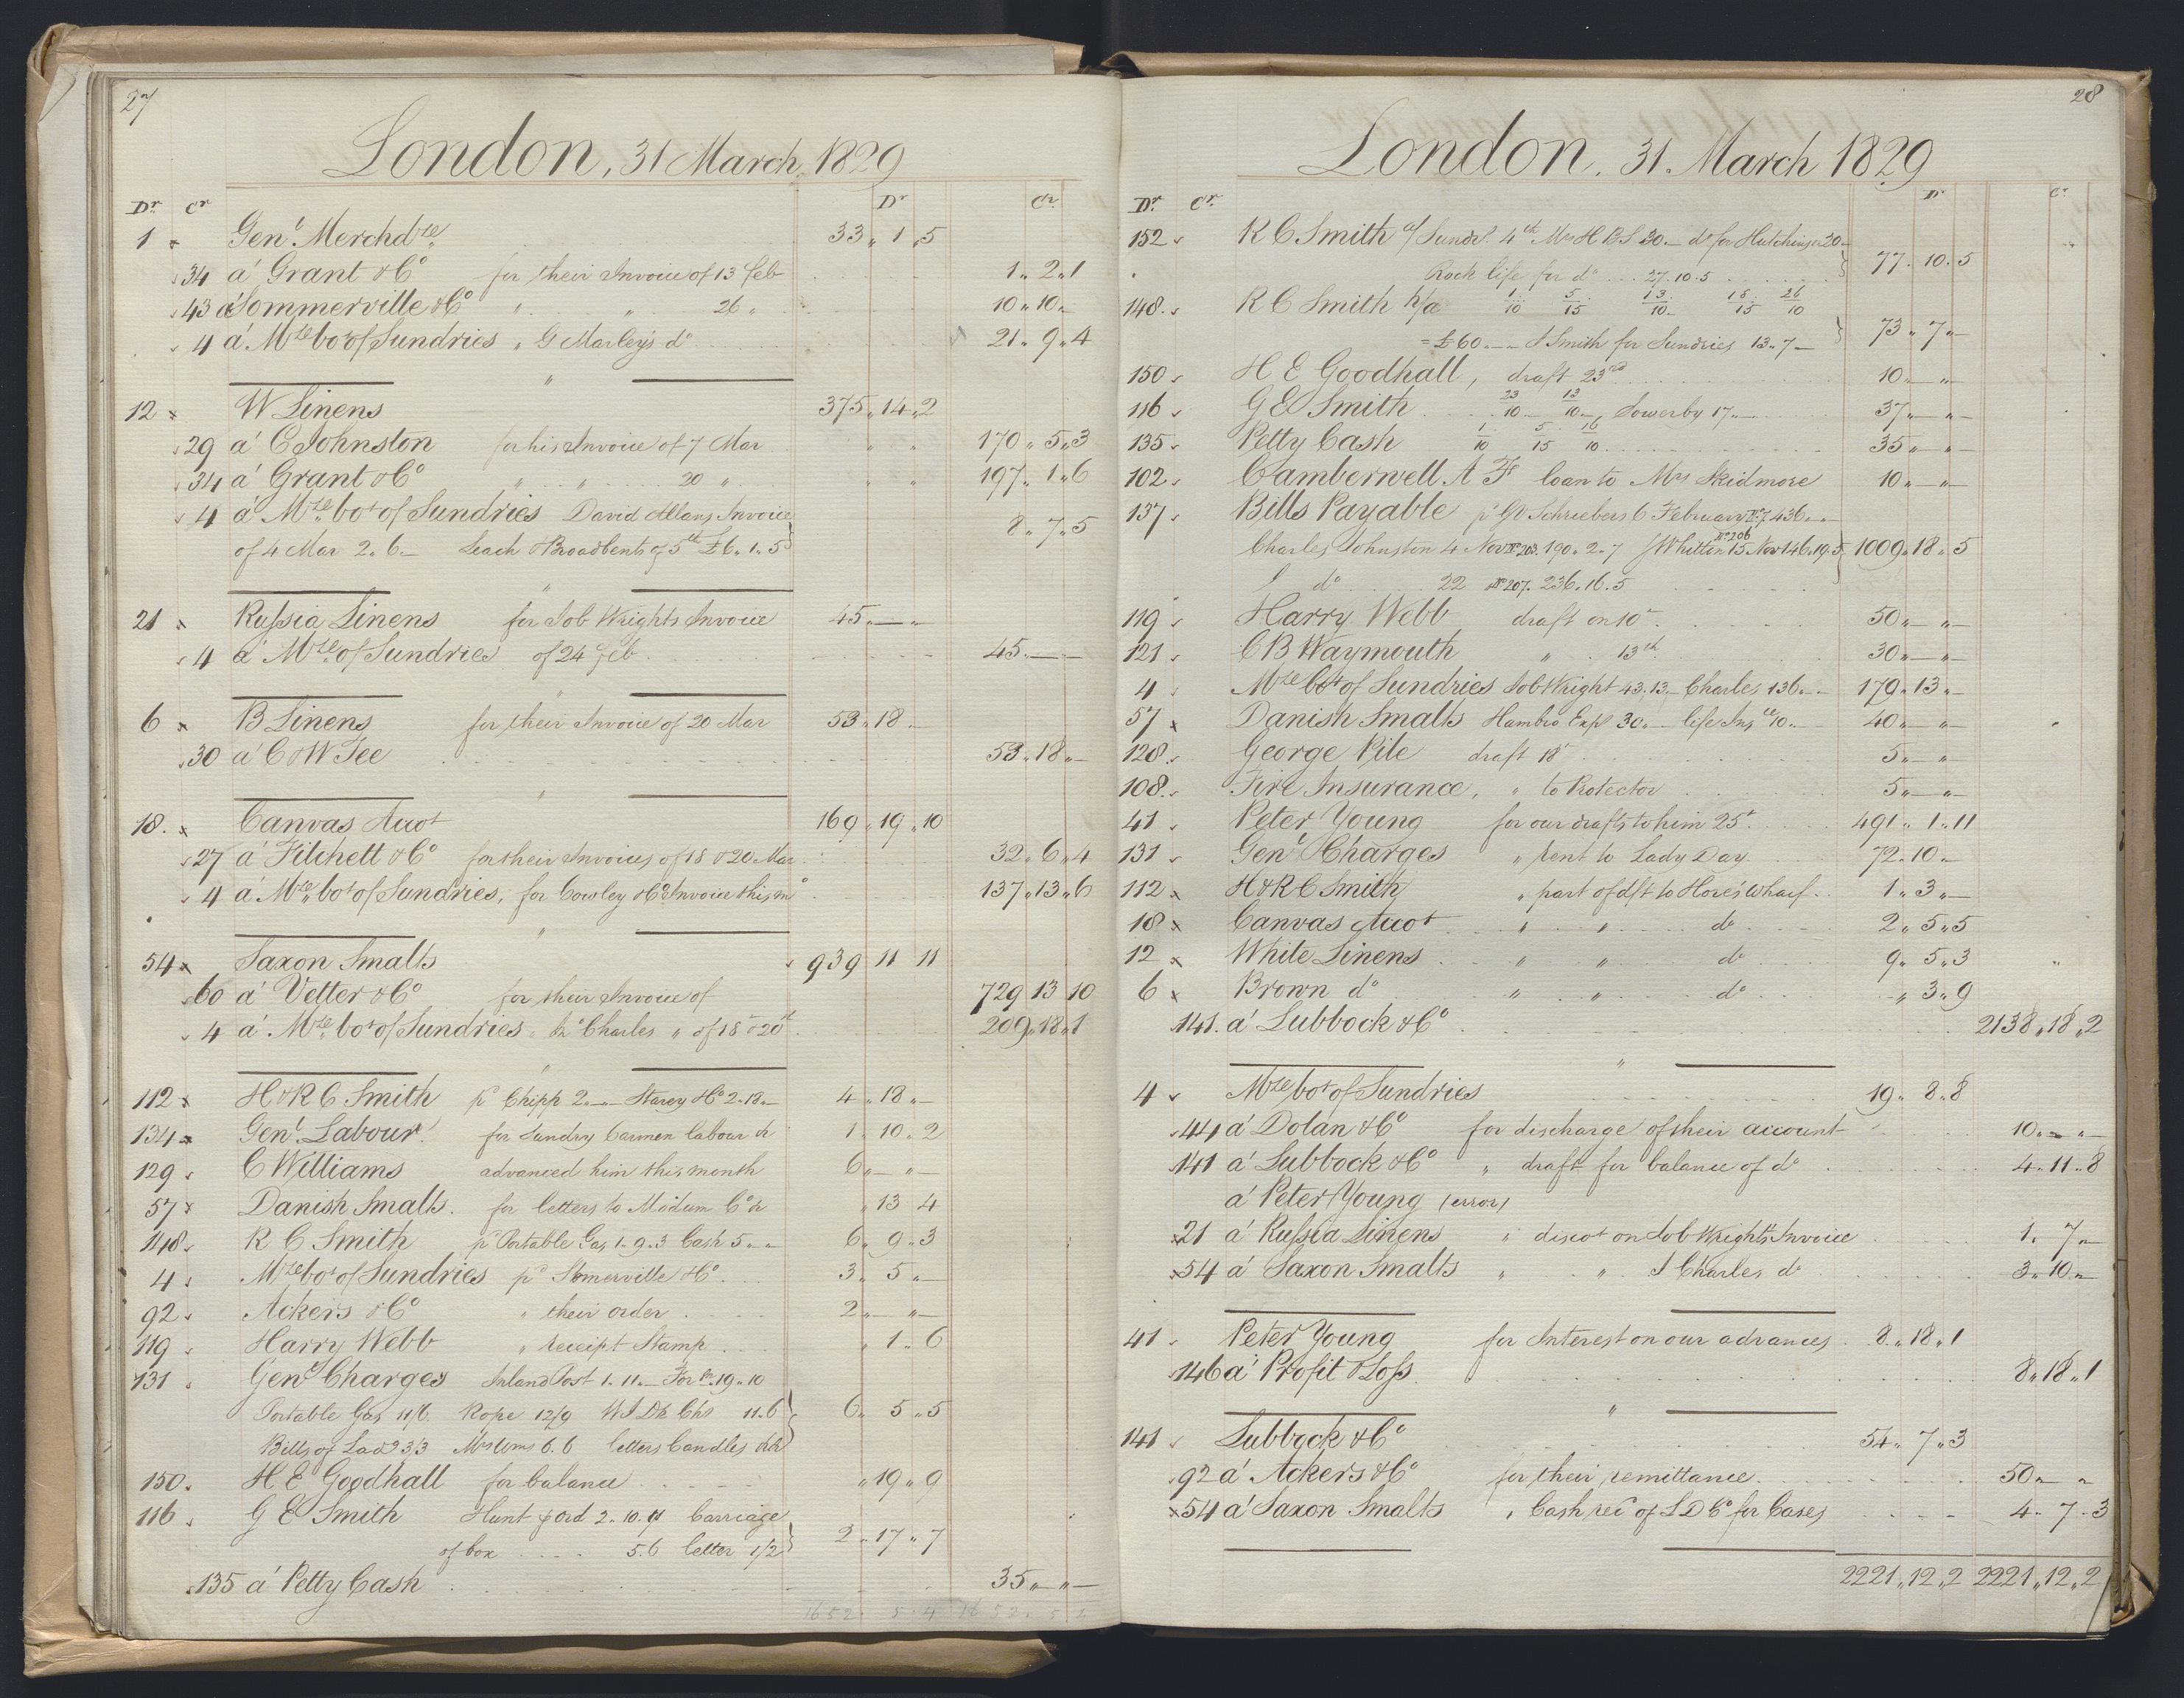 27
London, 31 March, 1829
Dr. Cr Dr Cr.
1 Genl. Merchdze 33 " 1 " 5
34 a' Grant & Co for their Invoice of 13 Feb 1 " 2 " 1
43 a' Sommerville & Co " " 26 " 10 " 10 " —
4 a' Mze bot of Sundries " G Marley's do 21 " 9 " 4
12 W Linens 375 " 14 " 2
29 a' C Johnston for his Invoice of 7 Mar 170 " 5 " 3
34 a' Grant & Co " " 20 " 197 " 1 " 6
4 a' Mze bot of Sundries David Allans Invoice
of 4 Mar 2 " 6 — Leach & Broadbents of 5th £6 " 1 " 5 8 " 7 " 5
21 Russia Linens for Job Wrights Invoice 45 " — " —
4 a' Mze of Sundries of 24 Feb 45 " — " —
6 B Linens for their Invoice of 20 Mar 53 " 18 " —
30 a' C & W Tee 53 " 18 " —
18. Canvas Acct 169 " 19 " 10
27 a' Fitchett & Co for their Invoices of 18 & 20 Mar 32 " 6 " 4
4 a' Mze bot of Sundries, for Cowley & Co Invoice this mo 137 " 13 " 6
54 Saxon Smalts 939 11 11
60 a' Vetter & Co for their Invoice of 729 13 10
4 a' Mze bot of Sundries " Charles " of 18 & 20th 209 " 18 " 1
112 H & R C Smith pd Chipp 2 " — " — Starey & Co 2 " 18 " — 4 " 18 " —
134 Genl. Labour for Sundry Carmen labour &c 1 " 10 " 2
129 C Williams advanced him this month 6 " — " —
57 Danish Smalts. for letters to Modum Co &c " 13 " 4
148 R C Smith pd Portable Gas 1 " 9 " 3 Cash 5 " — " — 6 " 9 " 3
4 Mze bot of Sundries pd Somerville & Co 3 " 5 " —
92 Ackers & Co " their order 2 " — " —
119 Harry Webb " receipt Stamp " 1 " 6
131 Genl Charges Inland Post 1 " 11 " — For do " 19 " 10
Portable Gas 11/6 Rope 12/9 W I Dk Chs 11.6 6 " 5 " 5
Bills of Lad 23/3 Mrs Wms 6.6 letters Candles &c &c
150. H E Goodhall for balance " 19 " 9
116 G E Smith Hunt pr ord 2 " 10 " 11 Carriage
of box 5.6 letter 1/2 2 " 17 " 7
135 a' Petty Cash 35 " — " —
1652 . 5 . 4 1652 . 5 . 4
28
London. 31. March 1829
Dr. Cr. Dr Cr
152 R C Smith a/ Sundrs 4th Mrs H B S 30 " — do for Hutchings 20 " —
Rock life for do 27 . 10 . 5 77 " 10 " 5
148. R C Smith h/a 1/10 5/15 13/10 18/15 26/10
= £60 " — " — J Smith for Sundries 13 " 7 — 73 " 7 " —
150 H E Goodhall, draft 23rd 10 " — " —
116 G E Smith 23/10 13/10 Sowerby 17 " — 37 " — " —
135 Petty Cash 1/10 5/15 16/10 35 " — " —
102 Camberwell A F loan to Mrs Skidmore 10 " — " —
137 Bills Payable pd G V Schriebers 6 February No 7 436 " — " —
Charles Johnston 4 Nov No 203 . 190 " 2 " 7 J Whitlin No 206 15 Nov 146 . 19 . 5 1009 " 18 " 5
J do 22 No 207. 236 . 16 . 5
119 Harry Webb draft on 10th 50 " — " —
121 C B Waymouth " 13th 30 " — " —
4 Mze bot of Sundries Job Wright 43 . 13 — Charles 136 " — 179 . 13 " —
57 Danish Smalts Hambro Exps 30 " — life Insce 10 " — 40 " — " —
128. George Pile draft 18th 5 " — " —
108. Fire Insurance, " to Protector 5 " — " —
41 Peter Young for our drafts to him 25th 491 " 1 " 11
131 Genl Charges " rent to Lady Day 72 " 10 " —
112 H & R C Smith " part of dft to Hore's Wharf 1 " 3 " —
18 Canvas Acct " " do 2 " 5 " 5
12 White Linens " " do 9 " 5 " 3
6 Brown do " " do " 3 " 9
141. a' Lubbock & Co 2138 " 18 " 2
4 Mze bot of Sundries 19 " 8 " 8
44 a' Dolan & Co for discharge of their account 10 " — " —
141 a' Lubbock & Co " draft for balance of do 4 " 11 " 8
a' Peter Young (error)
21 a' Russia Linens " discot on Job Wright's Invoice 1 " 7 " —
54 a' Saxon Smalts " " J Charles do 3 " 10 " —
41 Peter Young for Interest on our advances 8 " 18 " 1
146 a' Profit & Loss 8 " 18 " 1
141 Lubbock & Co 54 " 7 " 3
92 a' Ackers & Co for their remittance 50 " — "
54 a' Saxon Smalts " Cash recd of S D Co for Cases 4 " 7 " 3
2221 " 12 " 2 2221 " 12 " 2